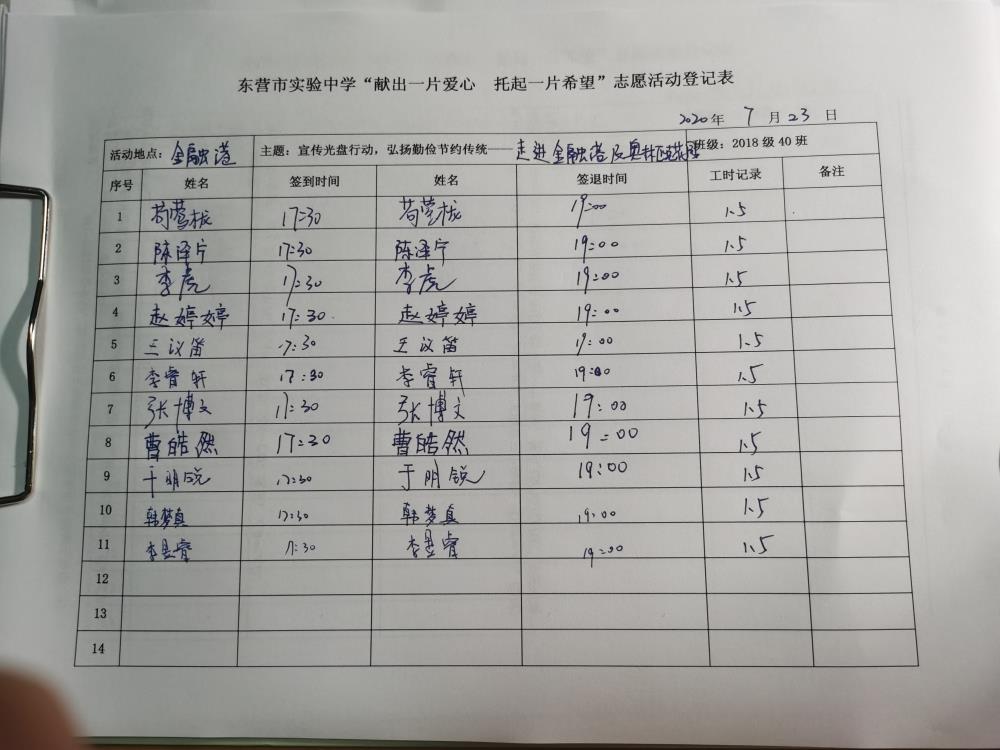 东营市实验中学“献出一片爱心 托起一片希望”志愿活动登记表
2020年 7 月 23 日
活动地点：金融港 主题：宣传光盘行动，弘扬勤俭节约传统——走进金融港及奥林匹克花园 班级：2018 级 40 班
序号 姓名 签到时间 姓名 签退时间 工时记录 备注
1 17:30 19:00 1.5
2 陈泽宁 17:30 陈泽宁 19:00 1.5
3 李虎 17:30 李虎 19:00 1.5
4 赵婷婷 17:30 赵婷婷 19:00 1.5
5 王议笛 17:30 王议笛 19:00 1.5
6 李睿轩 17:30 李睿轩 19:00 1.5
7 张博文 17:30 张博文 19:00 1.5
8 曹皓然 17:30 曹皓然 19:00 1.5
9 于明锐 17:30 于明锐 19:00 1.5
10 韩梦真 17:30 韩梦真 19:00 1.5
11 17:30 19:00 1.5
12
13
14